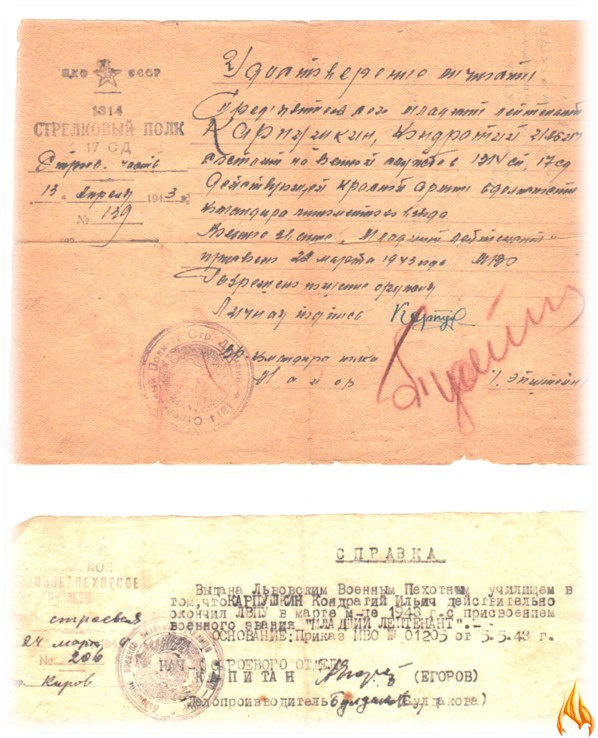 НКО СССР
1314
СТРЕЛКОВЫЙ ПОЛК
17 СД
Строев. часть
"13" Апреля 1943 г.
№ 139
Удостоверение личности
Предъявитель сего младший лейтенант
Карпушкин, Кондратий Ильич
состоит на военной службе в 1314 сп, 17 сд
Действующей красной армии в должности
командира пулеметного взвода
Военное звание "Младший лейтенант"
присвоено 22 марта 1943 года
Разрешено ношение оружия
Личная подпись
Вр. командира полка
Майор /. Эпштейн
СПРАВКА
Выдана Львовским Военным Пехотным училищем в
том, что КАРПУШКИН Кондратий Ильич действительно
окончил ЛВПУ в марте м-це 1943 г. с присвоением
военного звания "МЛАДШИЙ ЛЕЙТЕНАНТ".-
ОСНОВАНИЕ: Приказ МВО № 01205 от 5.5.43 г.
строевая
24 марта
№ 206
Киров
НАЧ-К СТРОЕВОГО ОТДЕЛА
КАПИТАН (ЕГОРОВ)
Делопроизводитель (Булдакова)